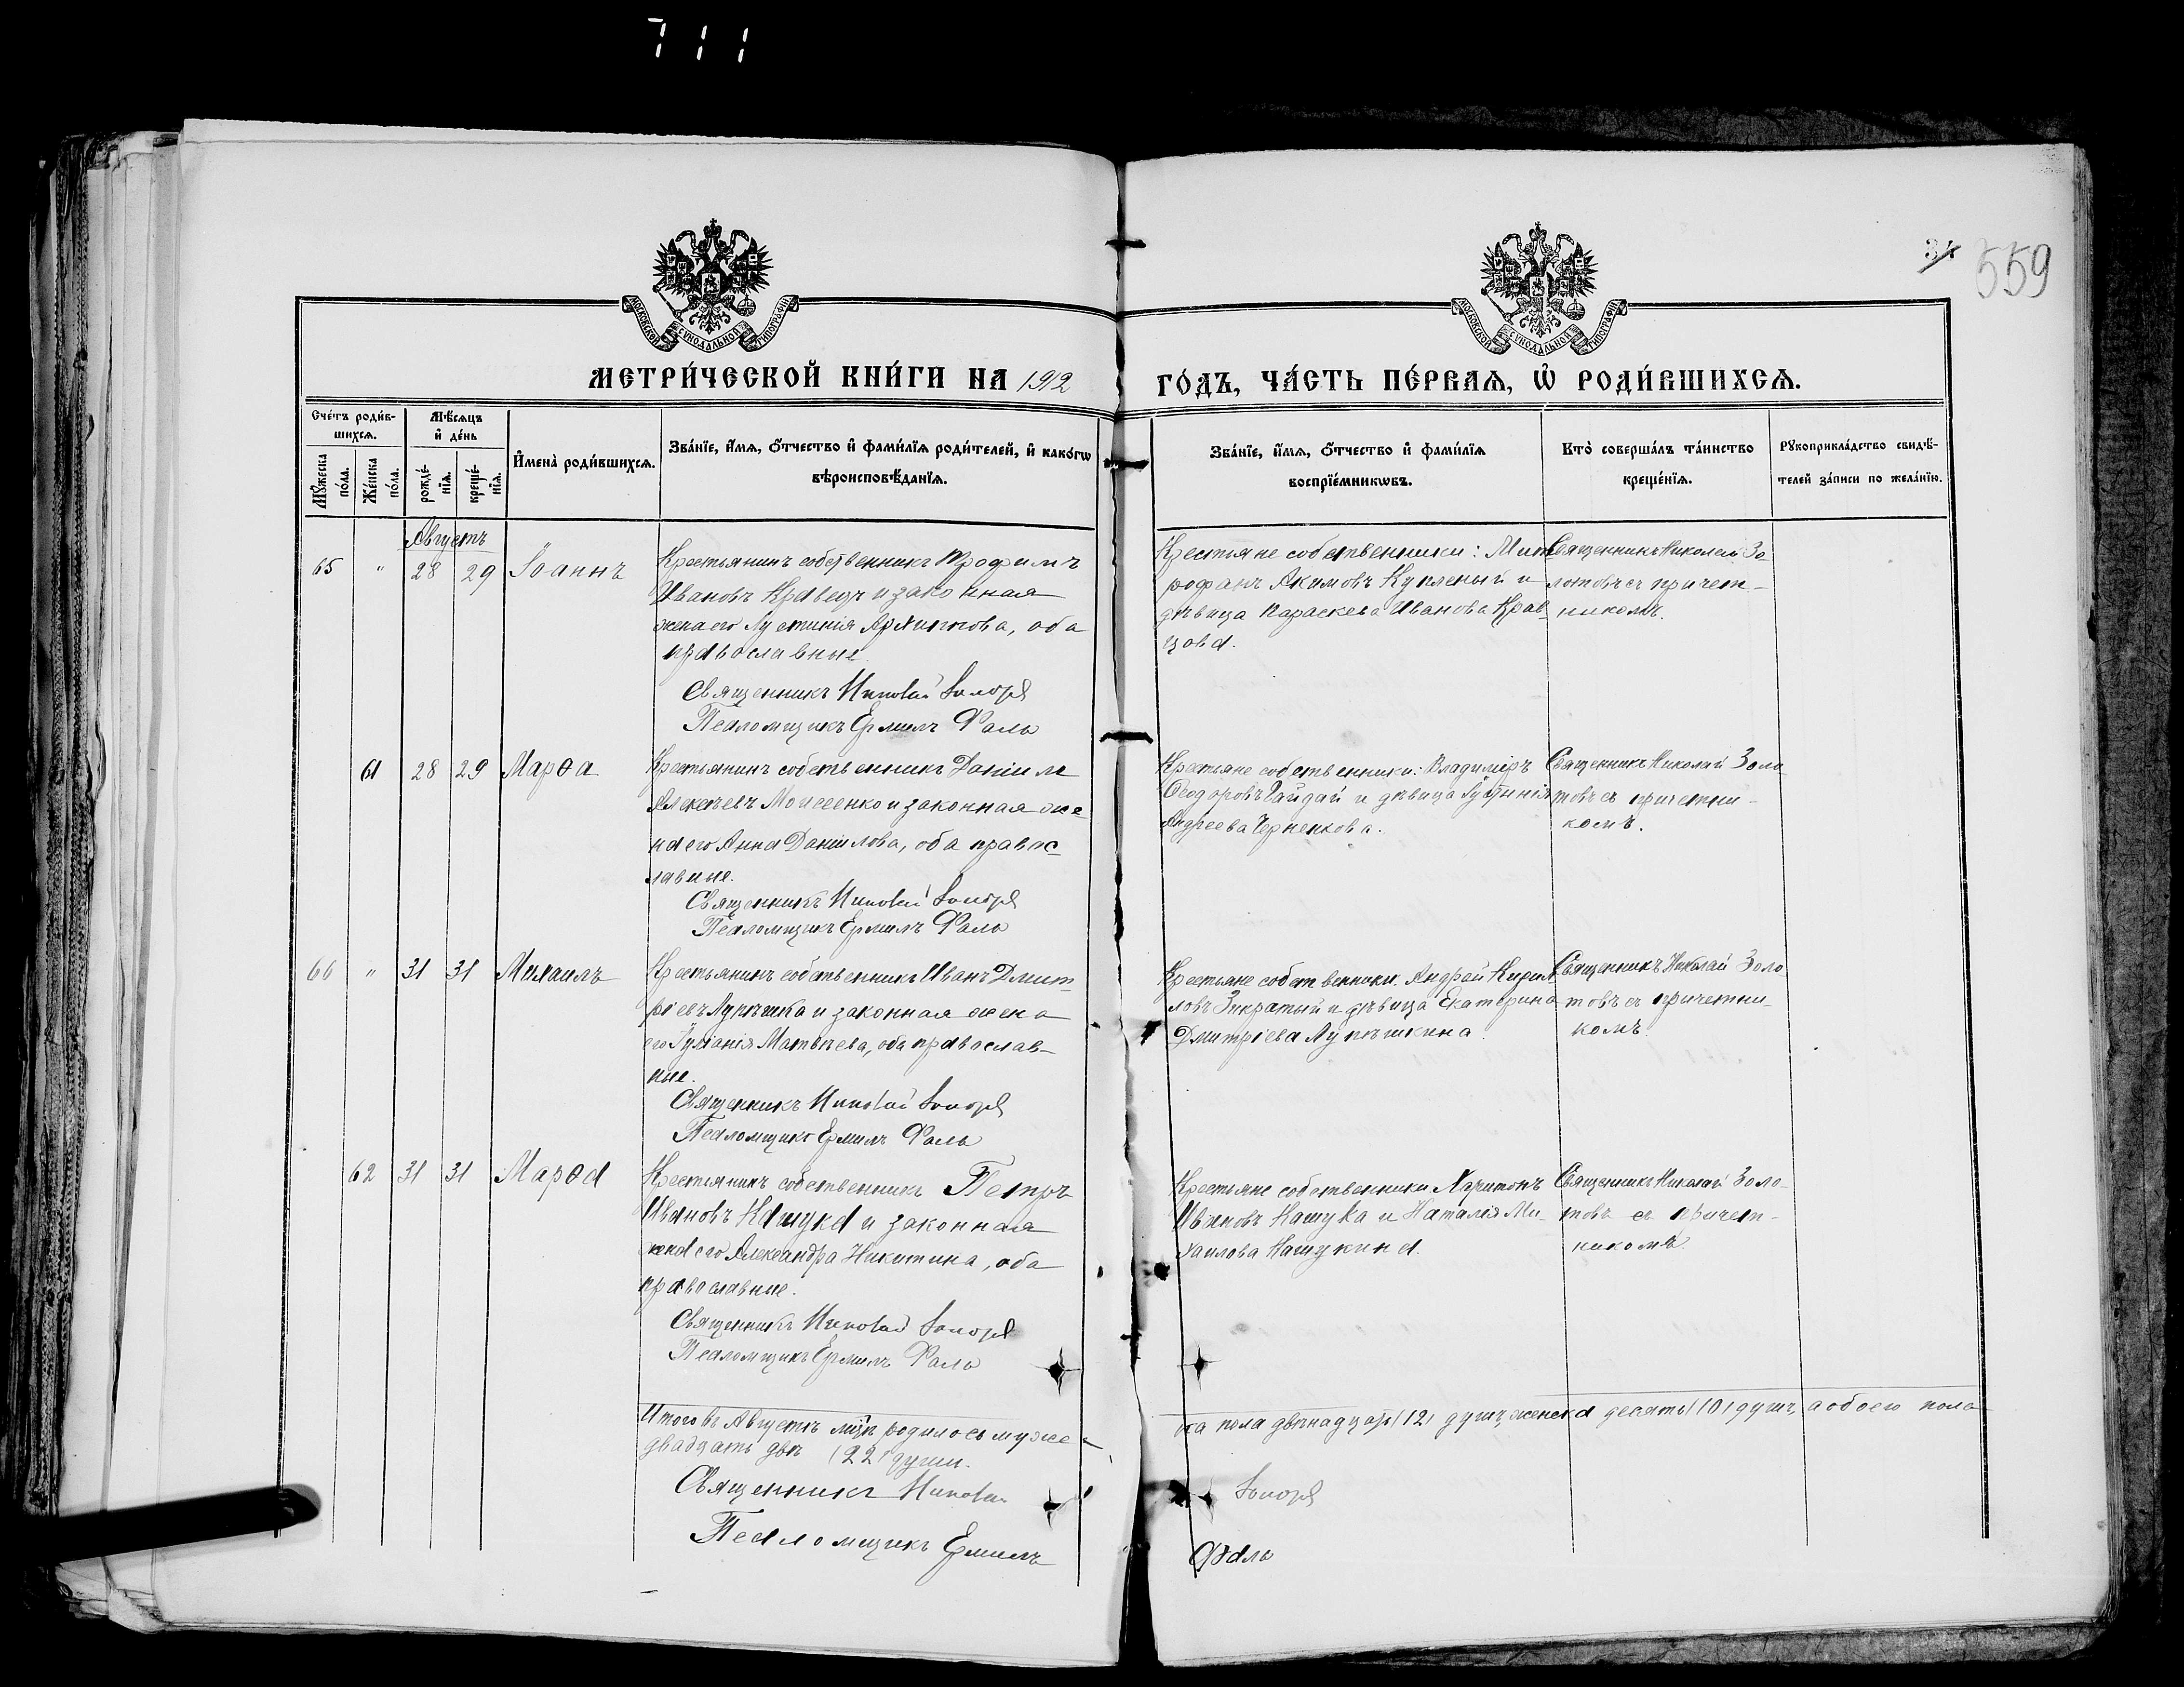 711
34 559
МОСКОВСКОЙ СѴНОДАЛЬНОЙ ТИПОГРАФІИ
МОСКОВСКОЙ СѴНОДАЛЬНОЙ ТИПОГРАФІИ
МЕТРИ́ЧЕСКОЙ КНИ́ГИ НА 1912 ГО́ДЪ, ЧА́СТЬ ПЕ́РВАѦ, Ѡ҆ РОДИ́ВШИХСѦ.
Сче́тъ роди́в-
шихсѧ.
Мꙋ́жеска по́ла.
Же́нска по́ла.
Мѣ́сѧцъ
и҆ де́нь
рожде́-
нїѧ.
креще́-
нїѧ.
И҆мена̀ роди́вшихсѧ.
Зва́нїе, и҆́мѧ, ѻ҆́тчество и҆ фами́лїѧ роди́телей, и҆ како́гѡ
вѣроисповѣ́данїѧ.
Зва́нїе, и҆́мѧ, ѻ҆́тчество и҆ фами́лїѧ
воспрїе́мникѡвъ.
Кто̀ соверша́лъ та́инство
креще́нїѧ.
Рꙋкоприкла́дство свидѣ́-
телей за́писи по жела́нїю.
Августъ
65 " 28 29 Іоаннъ
Крестьянинъ собственникъ Трофимъ
Ивановъ Кравецъ и законная
жена его Іустинія Архиппова, оба
православные.
Священникъ Николай
Псаломщикъ Ермилъ Фаль
Крестьяне собственники: Мит-
рофанъ Акимовъ Купленый и
дѣвица Параскева Иванова Крав-
цова.
Священникъ Николай Зо-
лотовъ съ причет-
никомъ.
61 28 29 Марѳа
Крестьянинъ собственникъ Даніилъ
Алексѣевъ Моисеенко и законная же-
на его Анна Даніилова, оба правос-
лавные.
Священникъ Николай
Псаломщикъ Ермилъ Фаль
Крестьяне собственники: Владиміръ
Ѳеодоровъ Гайдай и дѣвица Іустинія
Андреева Черненкова.
Священникъ Николай Золо
товъ съ причетни-
комъ.
66 " 31 31 Михаилъ
Крестьянинъ собственникъ Иванъ Дмит-
ріевъ Лупѣшка и законная жена
его Іуліанія Матвѣева, оба православ-
ные.
Священникъ Николай
Псаломщикъ Ермилъ Фаль
Крестьяне собственники: Андрей Кирил-
ловъ и дѣвица Екатерина
Дмитріева Лупѣшкина
Священникъ Николай Золо
товъ съ причетни-
комъ
62 31 31 Марѳа
Крестьянинъ собственникъ Петръ
Ивановъ Кашука и законная
жена его Александра Никитина, оба
православные.
Священникъ Николай
Псаломщикъ Ермилъ Фаль
Крестьяне собственники Харитонъ
Ивановъ Кашука и Наталія Ми-
хаилова Кашукина.
Священникъ Николай Золо-
товъ съ причет-
никомъ.
Итого въ Августѣ мцѣ родилось муже-
ска пола двѣнадцать (12) душъ, женска десять (10) душъ, а обоего пола
двадцать двѣ (22) души.
Священникъ Николай
Псаломщикъ Ермилъ Фаль